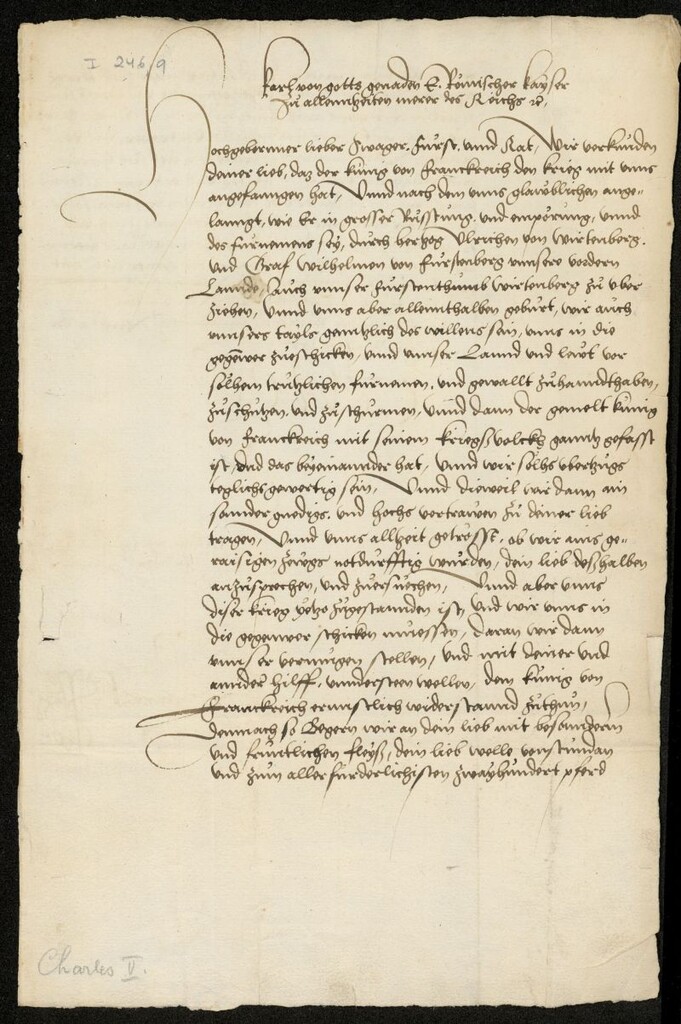 I 246, 9
Karl von gotts genaden E. Römischer kayser
zu allenntzeiten merer des Reichs rc.
Hochgebornner lieber Swager, Fürst, unnd Rat, Wir verkunden
deiner lieb, daz der künig von Franckreich den krieg mit unns
angefanngen hat, Unnd nach dem unns glawblichen ange-
lanngt, wie Er in grosser Rüsstung, und empörung, unnd
des fürnemens sey, durch hertzog Ulrichen von Wirtenberg,
und Graf Wilhelmen von Fürstenberg unnsere vordern
Lannde, Auch unnser Fürstenthumb Wirtenberg zu uber
ziehen, Unnd unns aber allennthalben gebürt, wir auch
unnsers tayls genntzlich des willens sein, unns in die
gegenwer zueschicken, unnd unnser Lannd und lewt vor
solhem trutzlichen fürnemen, und gewallt zuhanndthaben,
zuschutzen, und zuschürmen, Unnd dann der gemelt künig
von Franckreich mit seinem kriegssvolckh ganntz gefasst
ist, und das beyeinannder hat, Unnd wir solhs uberzugs
teglichs gewertig sein, Unnd dieweil wir dann ain
sonder gnedigs, und hochs vertrawen zu deiner lieb
tragen, Unnd unns allzeit getrösst, ob wir ains ge-
raisigen zewgs notdurfftig wurden, dein lieb desshalben
anzusprechen, und zuersuechen, Unnd aber unns
diser krieg yetzo zugestannden ist, und wir unns in
die gegenwer schicken müessen, daran wir dann
unnser vermugen stellen, und mit deiner und
annder hilff, unndersteen wellen, dem künig von
Franckreich ernnstlich widerstannd zuthun,
Demnach so Begern wir an dein lieb mit besonnderm
und früntlichen fleyss, dein lieb welle von stundan
und zum allerfürderlichisten zwayhundert pferd
Charles V.